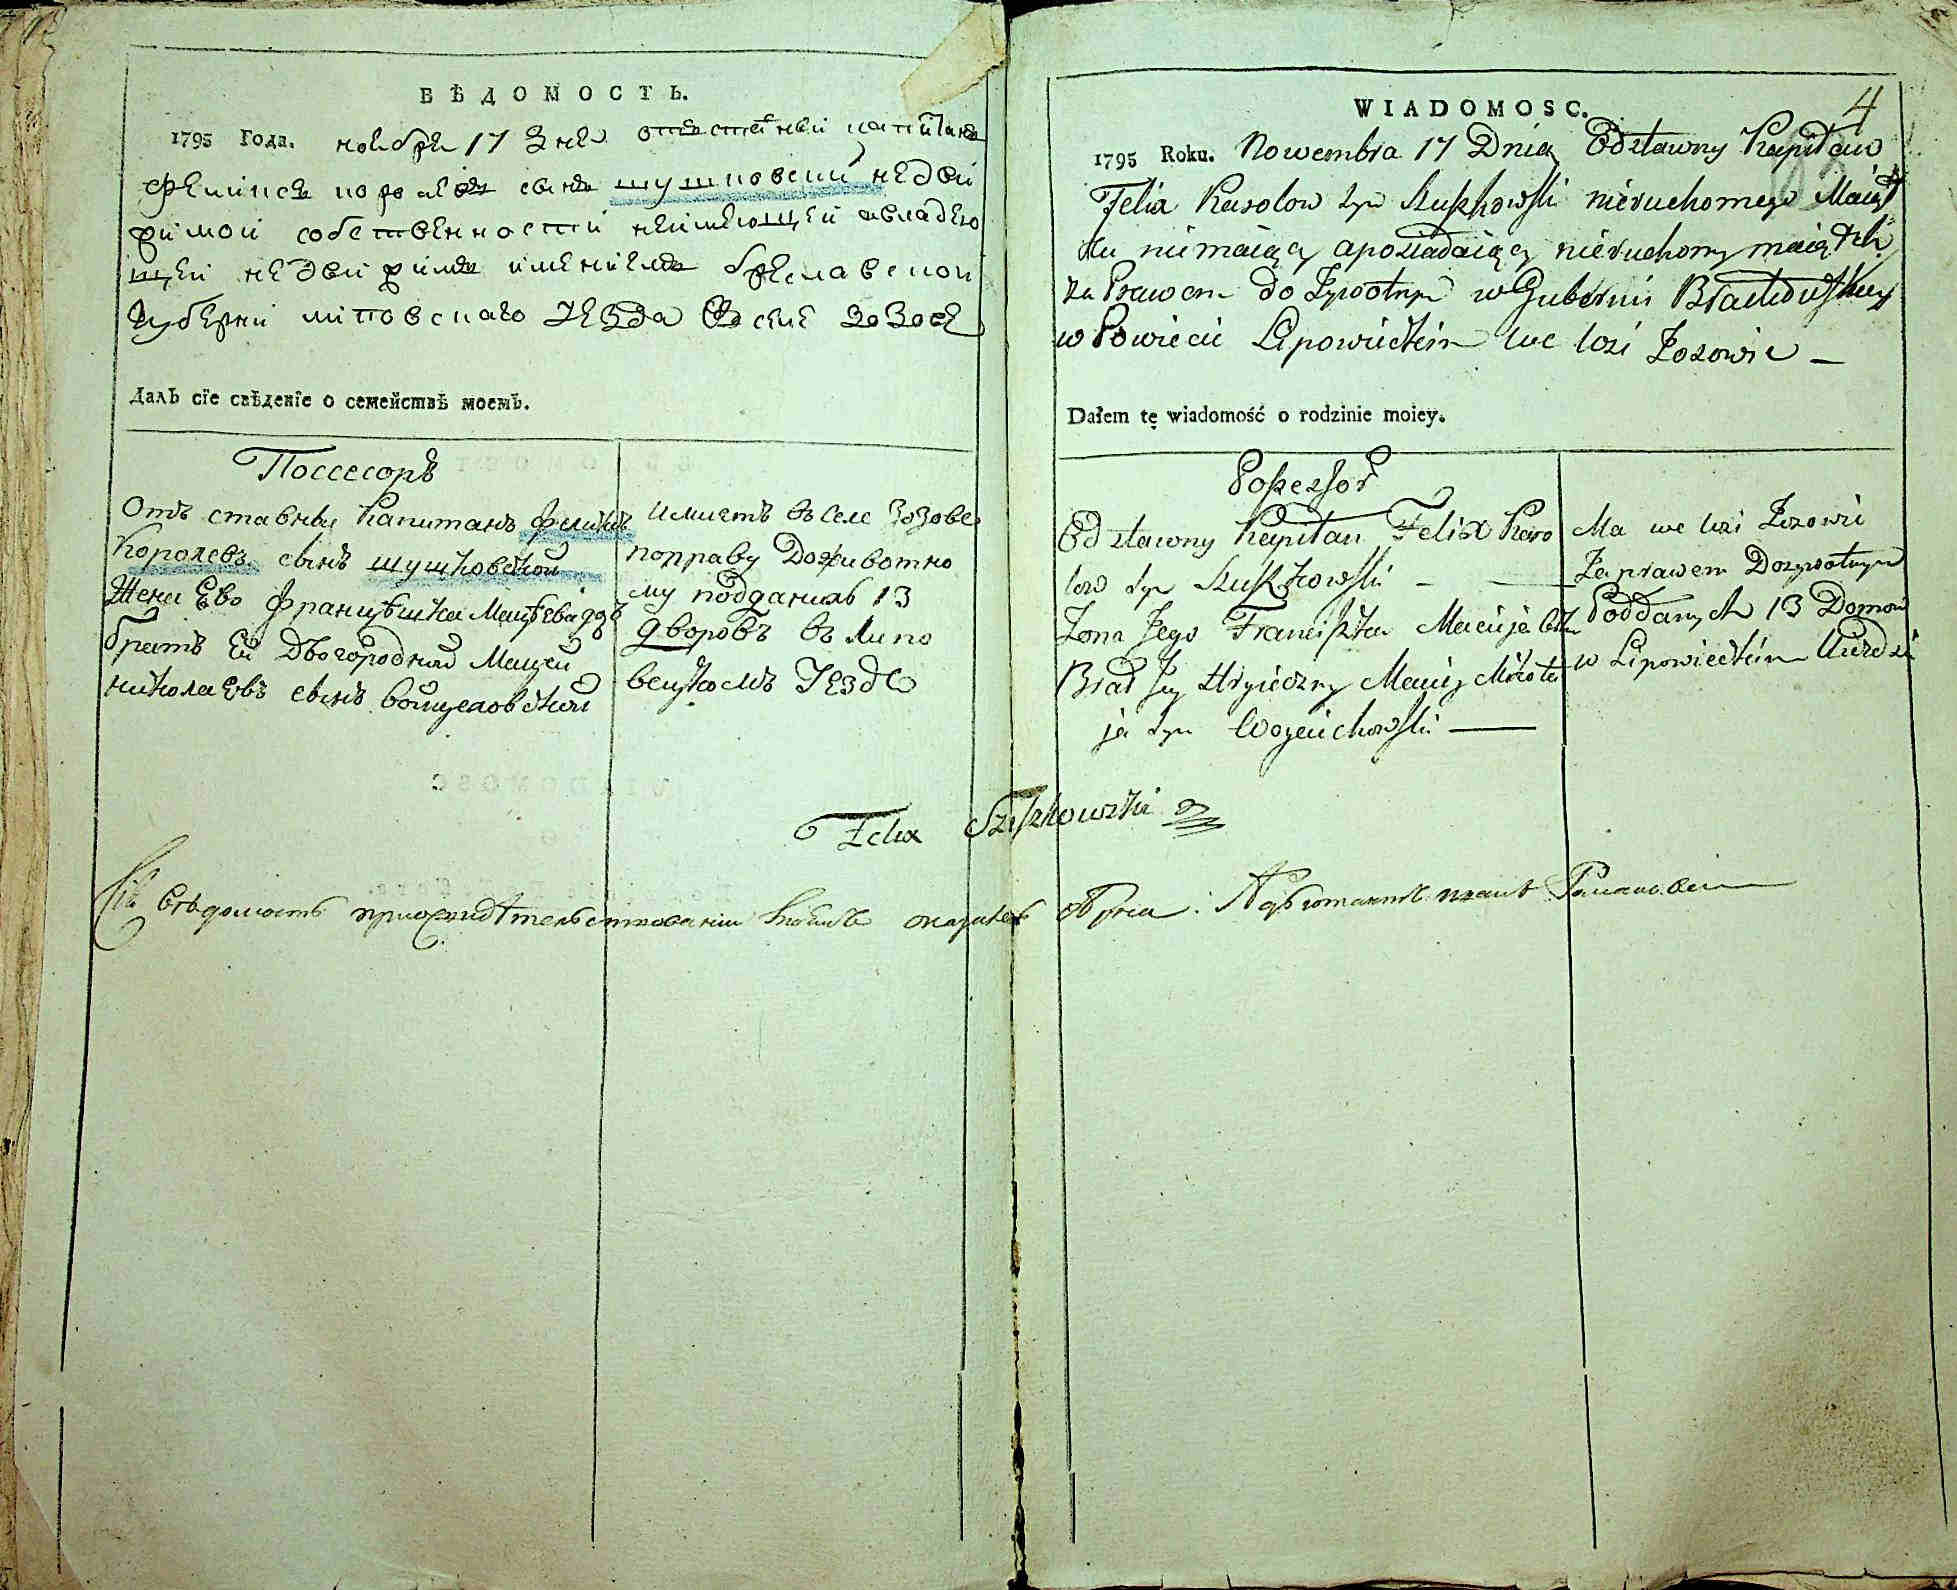 ВѢДОМОСТЬ.
1795 Года. ноября 17 дня отставный капитанъ
Феликсъ королевъ сынъ шушковский недви
жимой собственности неимѣющей авладѣю
щей недвижимъ имѣниемъ Бреславской
Губерни липовскаго уезда в селе зозове
Далъ сїе свѣденїе о семействѣ моемъ.
Поссесоръ
Отъ ставный Капитанъ феликъ
Королевъ сынъ шушковский
Жена Ево францѣшка Мацѣева
братъ Ей Двоюродный Мацей
николаевъ сынъ войцеховский
имиетъ въ селе Зозове
поправу Доживотно
му подданихъ 13
дворовъ въ липо
вецкомъ Уезде
WIADOMOSC.
4
1795 Roku. Nowembra 17 Dnia Odstawny Kapitan
Felix Karolow Syn Szuszkowski nieruchomego Maiąt
ku nimaiący aposiadaiący nieruchomy maiątek
za Prawem do Zywotnym w Gubernii Bracławskiey
w Powiecie Lipowieckim we wsi Zozowie —
Dałem tę wiadomość o rodzinie moiey.
Possessor
Odstawny Kapitan Felix Karo
low Syn Szuszkowski —
Zona Jego Franciszka Macieja
Brat Jey Stryieczny Maciey Mikoła
ja Syn Woyciechowski —
Ma we wsi Zozowie
Za prawem Dozywotnym
Poddanych 13 Domow
w Lipowieckim Uiezdzie
Felix Szuszkowski
Сїя вѣдомость